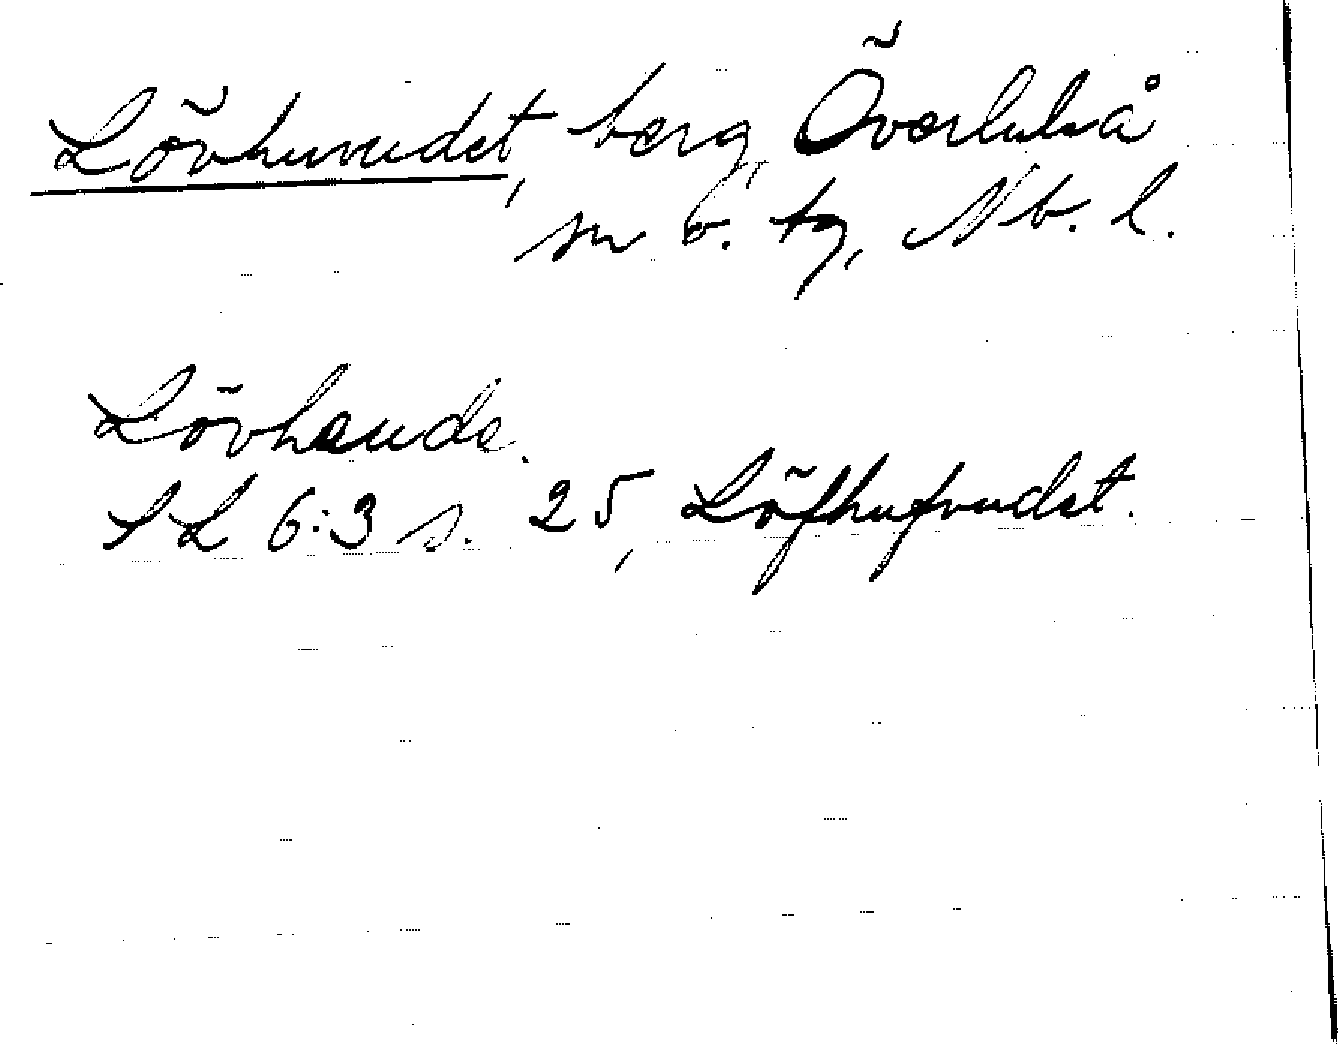 Lövhuvudet, berg, Överluleå
sn o. tg, Nb. l.
Lövhauda.
SL 6:3 s. 25, Löfhufvudet.